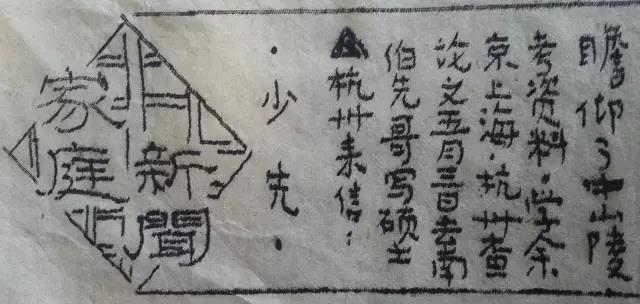 家庭
新聞
·少先·
▲杭州来信：
伯先哥写硕士
论文五月三日去南
京上海·杭州查
考资料·学余
瞻仰了中山陵